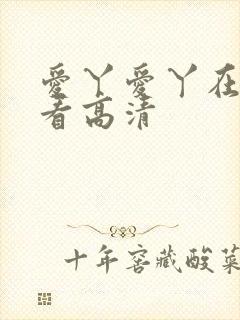 愛丫愛丫在
看高清
十年窖藏酸菜